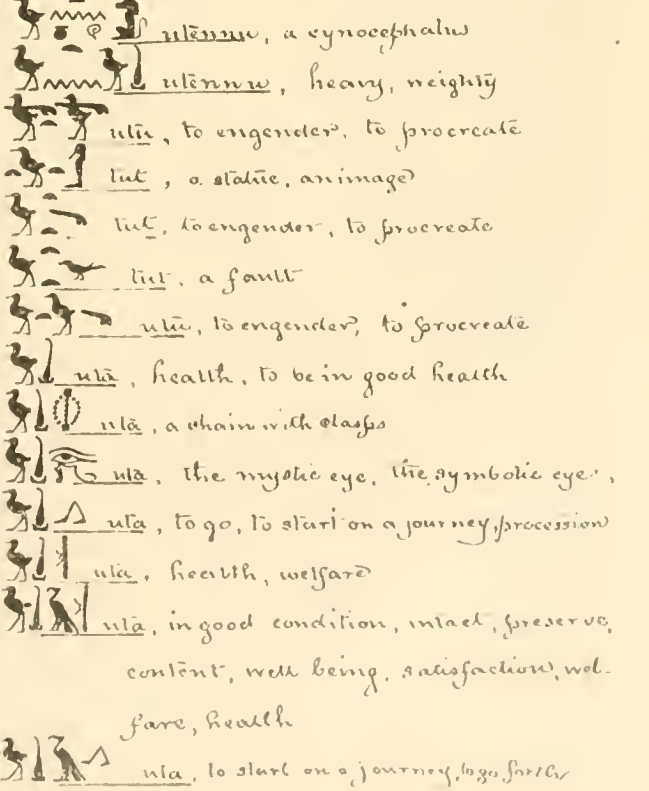 utēnnu, a cynocephalus
utēnnu, heavy, weighty
utū, to engender, to procreate
tut, a statue, an image
tut, to engender, to procreate
tut, a fault
utū, to engender, to procreate
uta, health, to be in good health
uta, a chain with clasps
uta, the mystic eye, the symbolic eye,
uta, to go, to start on a journey, procession
uta, health, welfare
uta, in good condition, intact, preserve,
content, well being, satisfaction, wel-
fare, health
uta, to start on a journey, to go forth